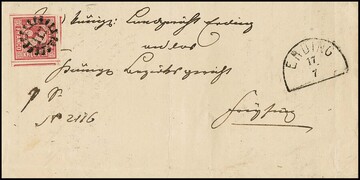 Königl. Landgericht Erding
an das
Königl. Bezirksgericht
Freysing
No 2176
ERDING
17.
7